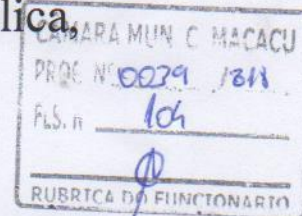 lica,
CAMARA MUN C. MACACU
PROC Nº 0039 /318
FLS. n 104
RUBRICA DO FUNCIONARIO